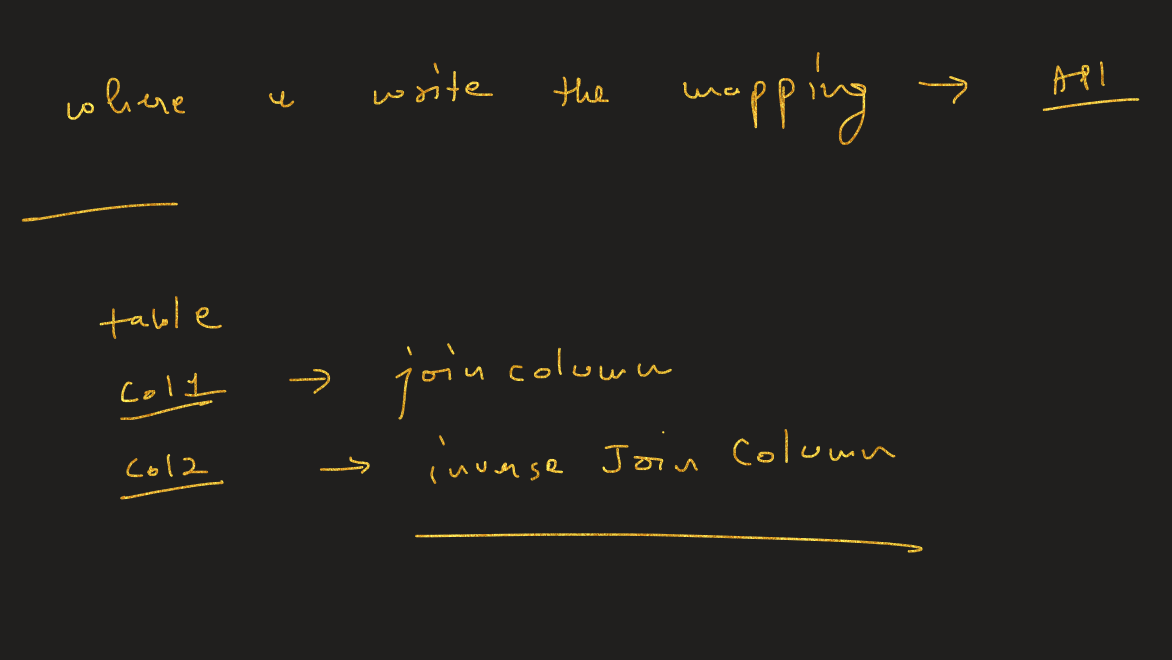 where u write the mapping → API
table
col1 → join column
col2 → inverse Join Column